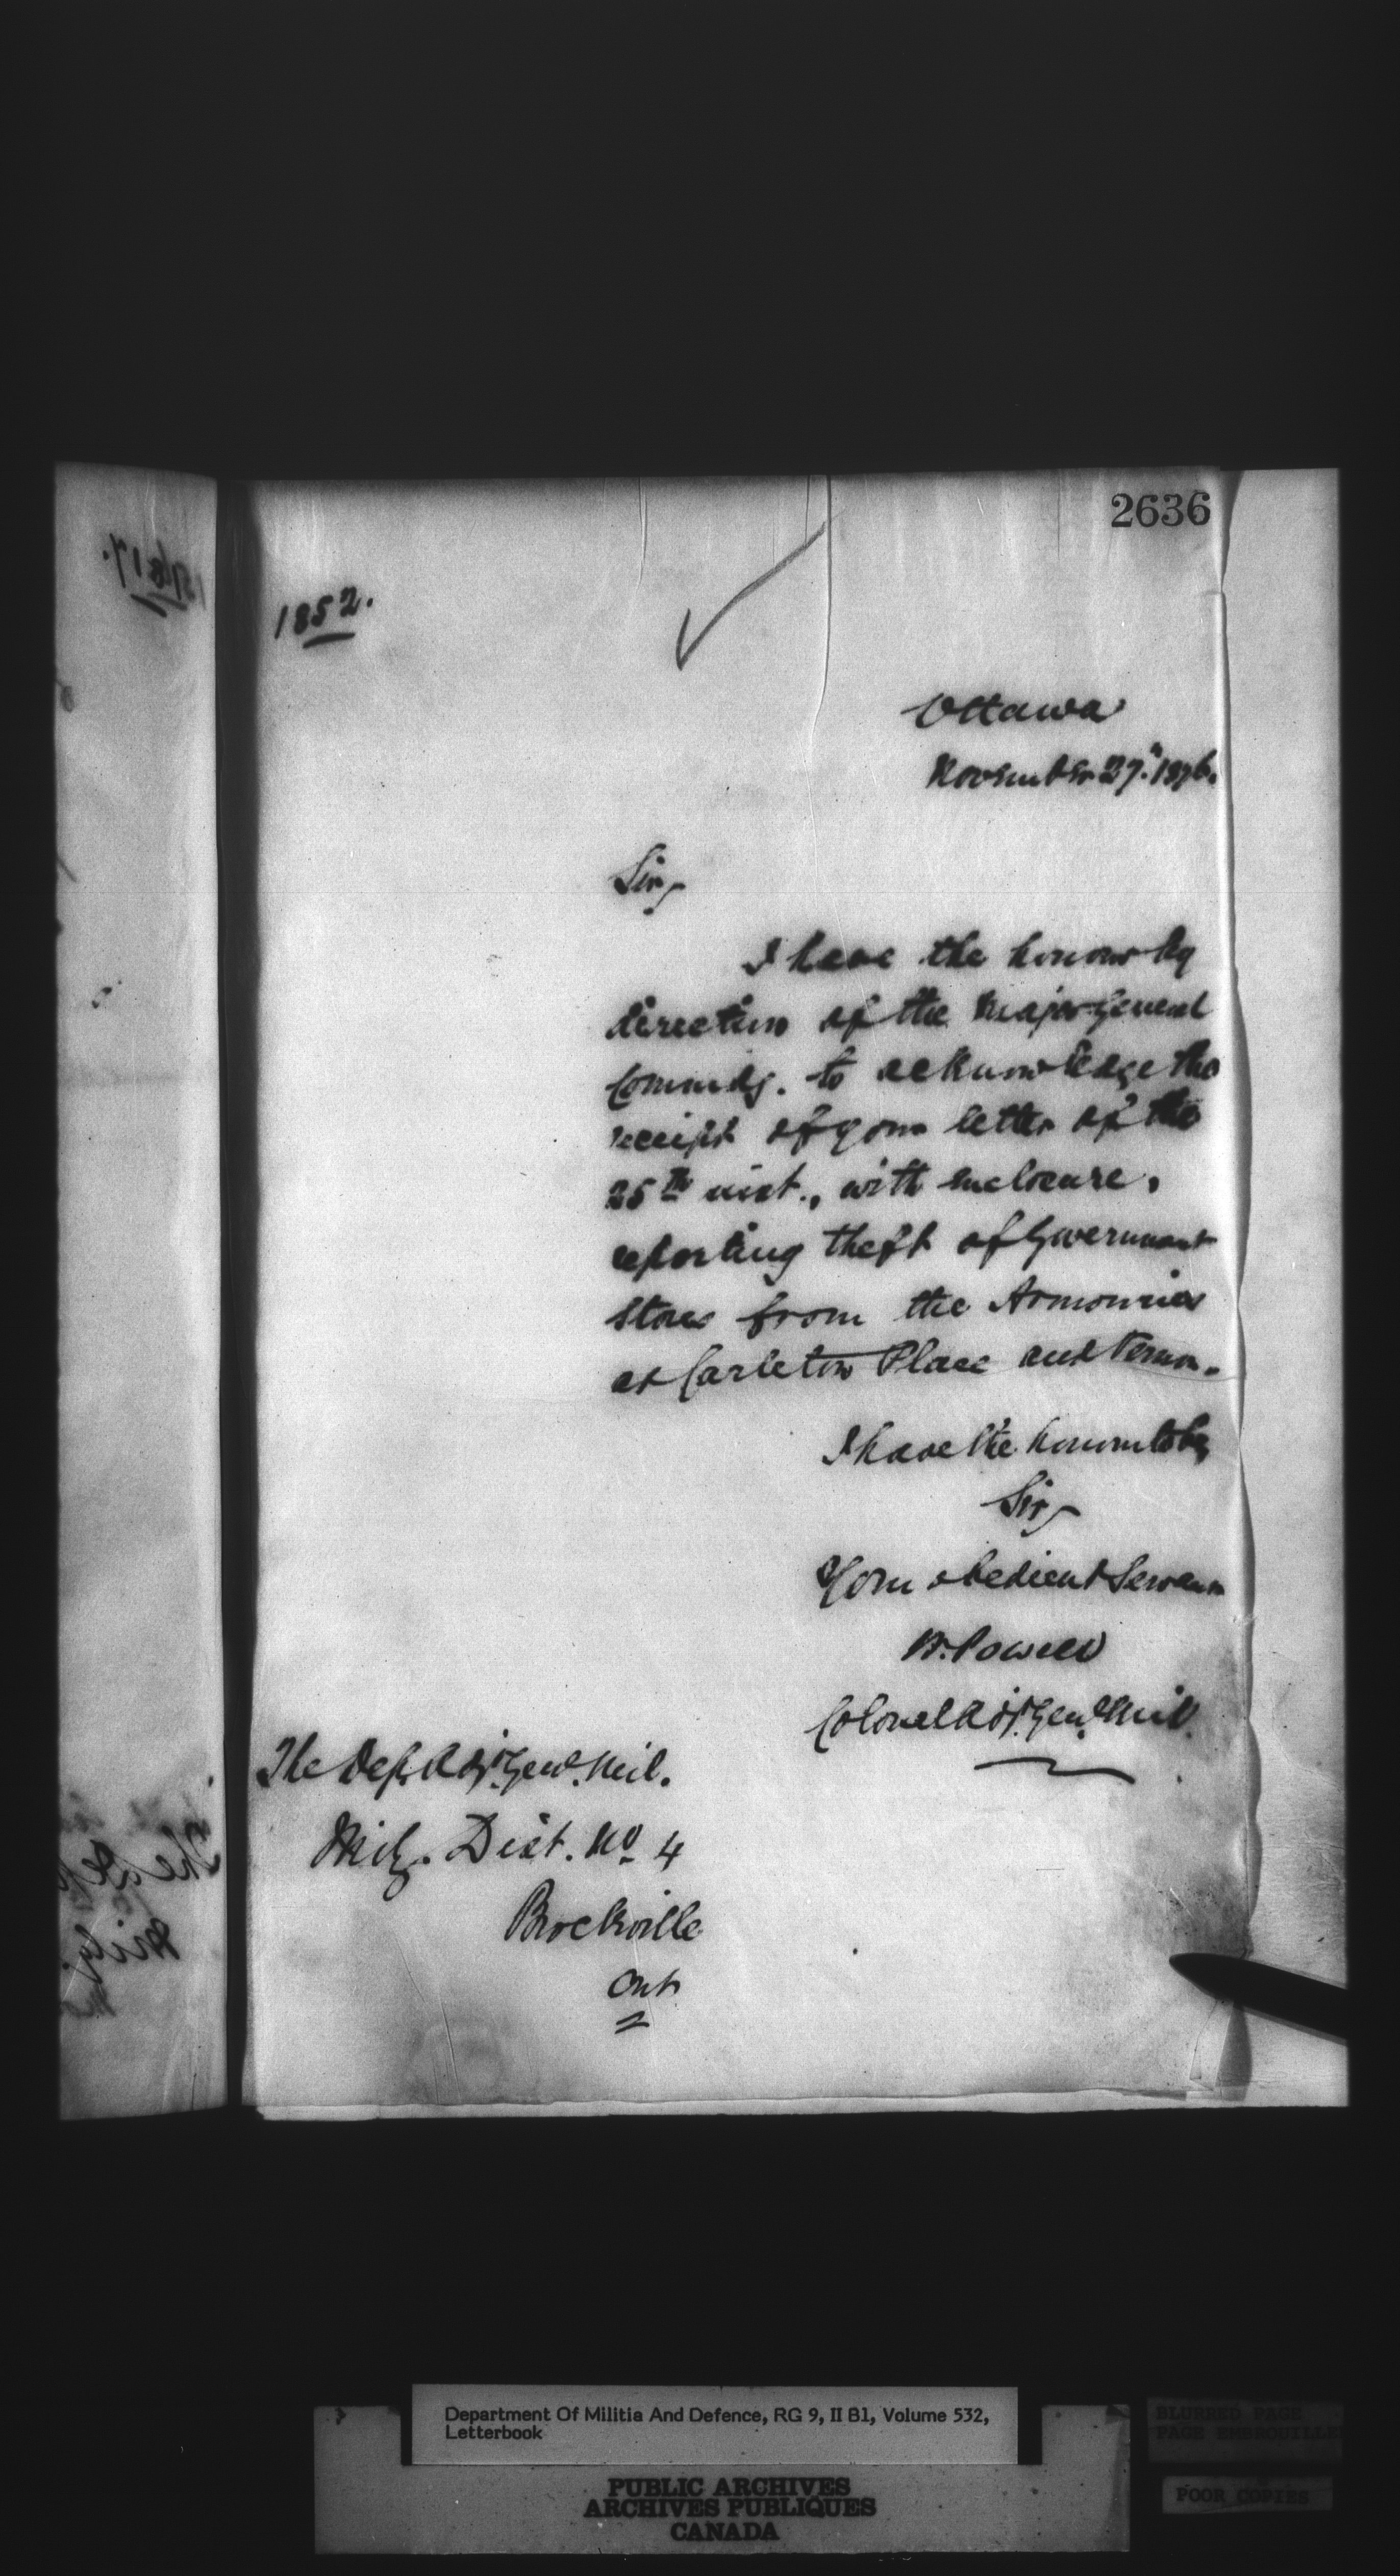 2636
1852.
Ottawa
November 27th 1876.
Sir,
I have the honour by
direction of the Major General
Commdg. to acknowledge the
receipt of your letter of the
25th inst., with enclosure,
reporting theft of Government
Stores from the Armouries
at Carleton Place and Vernon.
I have the honour to be,
Sir,
Your obedient Servant
W. Powell
Colonel Adjt. Genl. Mil.
The Dep. Adjt. Genl. Mil.
Mily. Dist. No 4
Brockville
Ont
Department Of Militia And Defence, RG 9, II B1, Volume 532,
Letterbook
PUBLIC ARCHIVES
ARCHIVES PUBLIQUES
CANADA
BLURRED PAGE
PAGE EMBROUILLEE
POOR COPIES